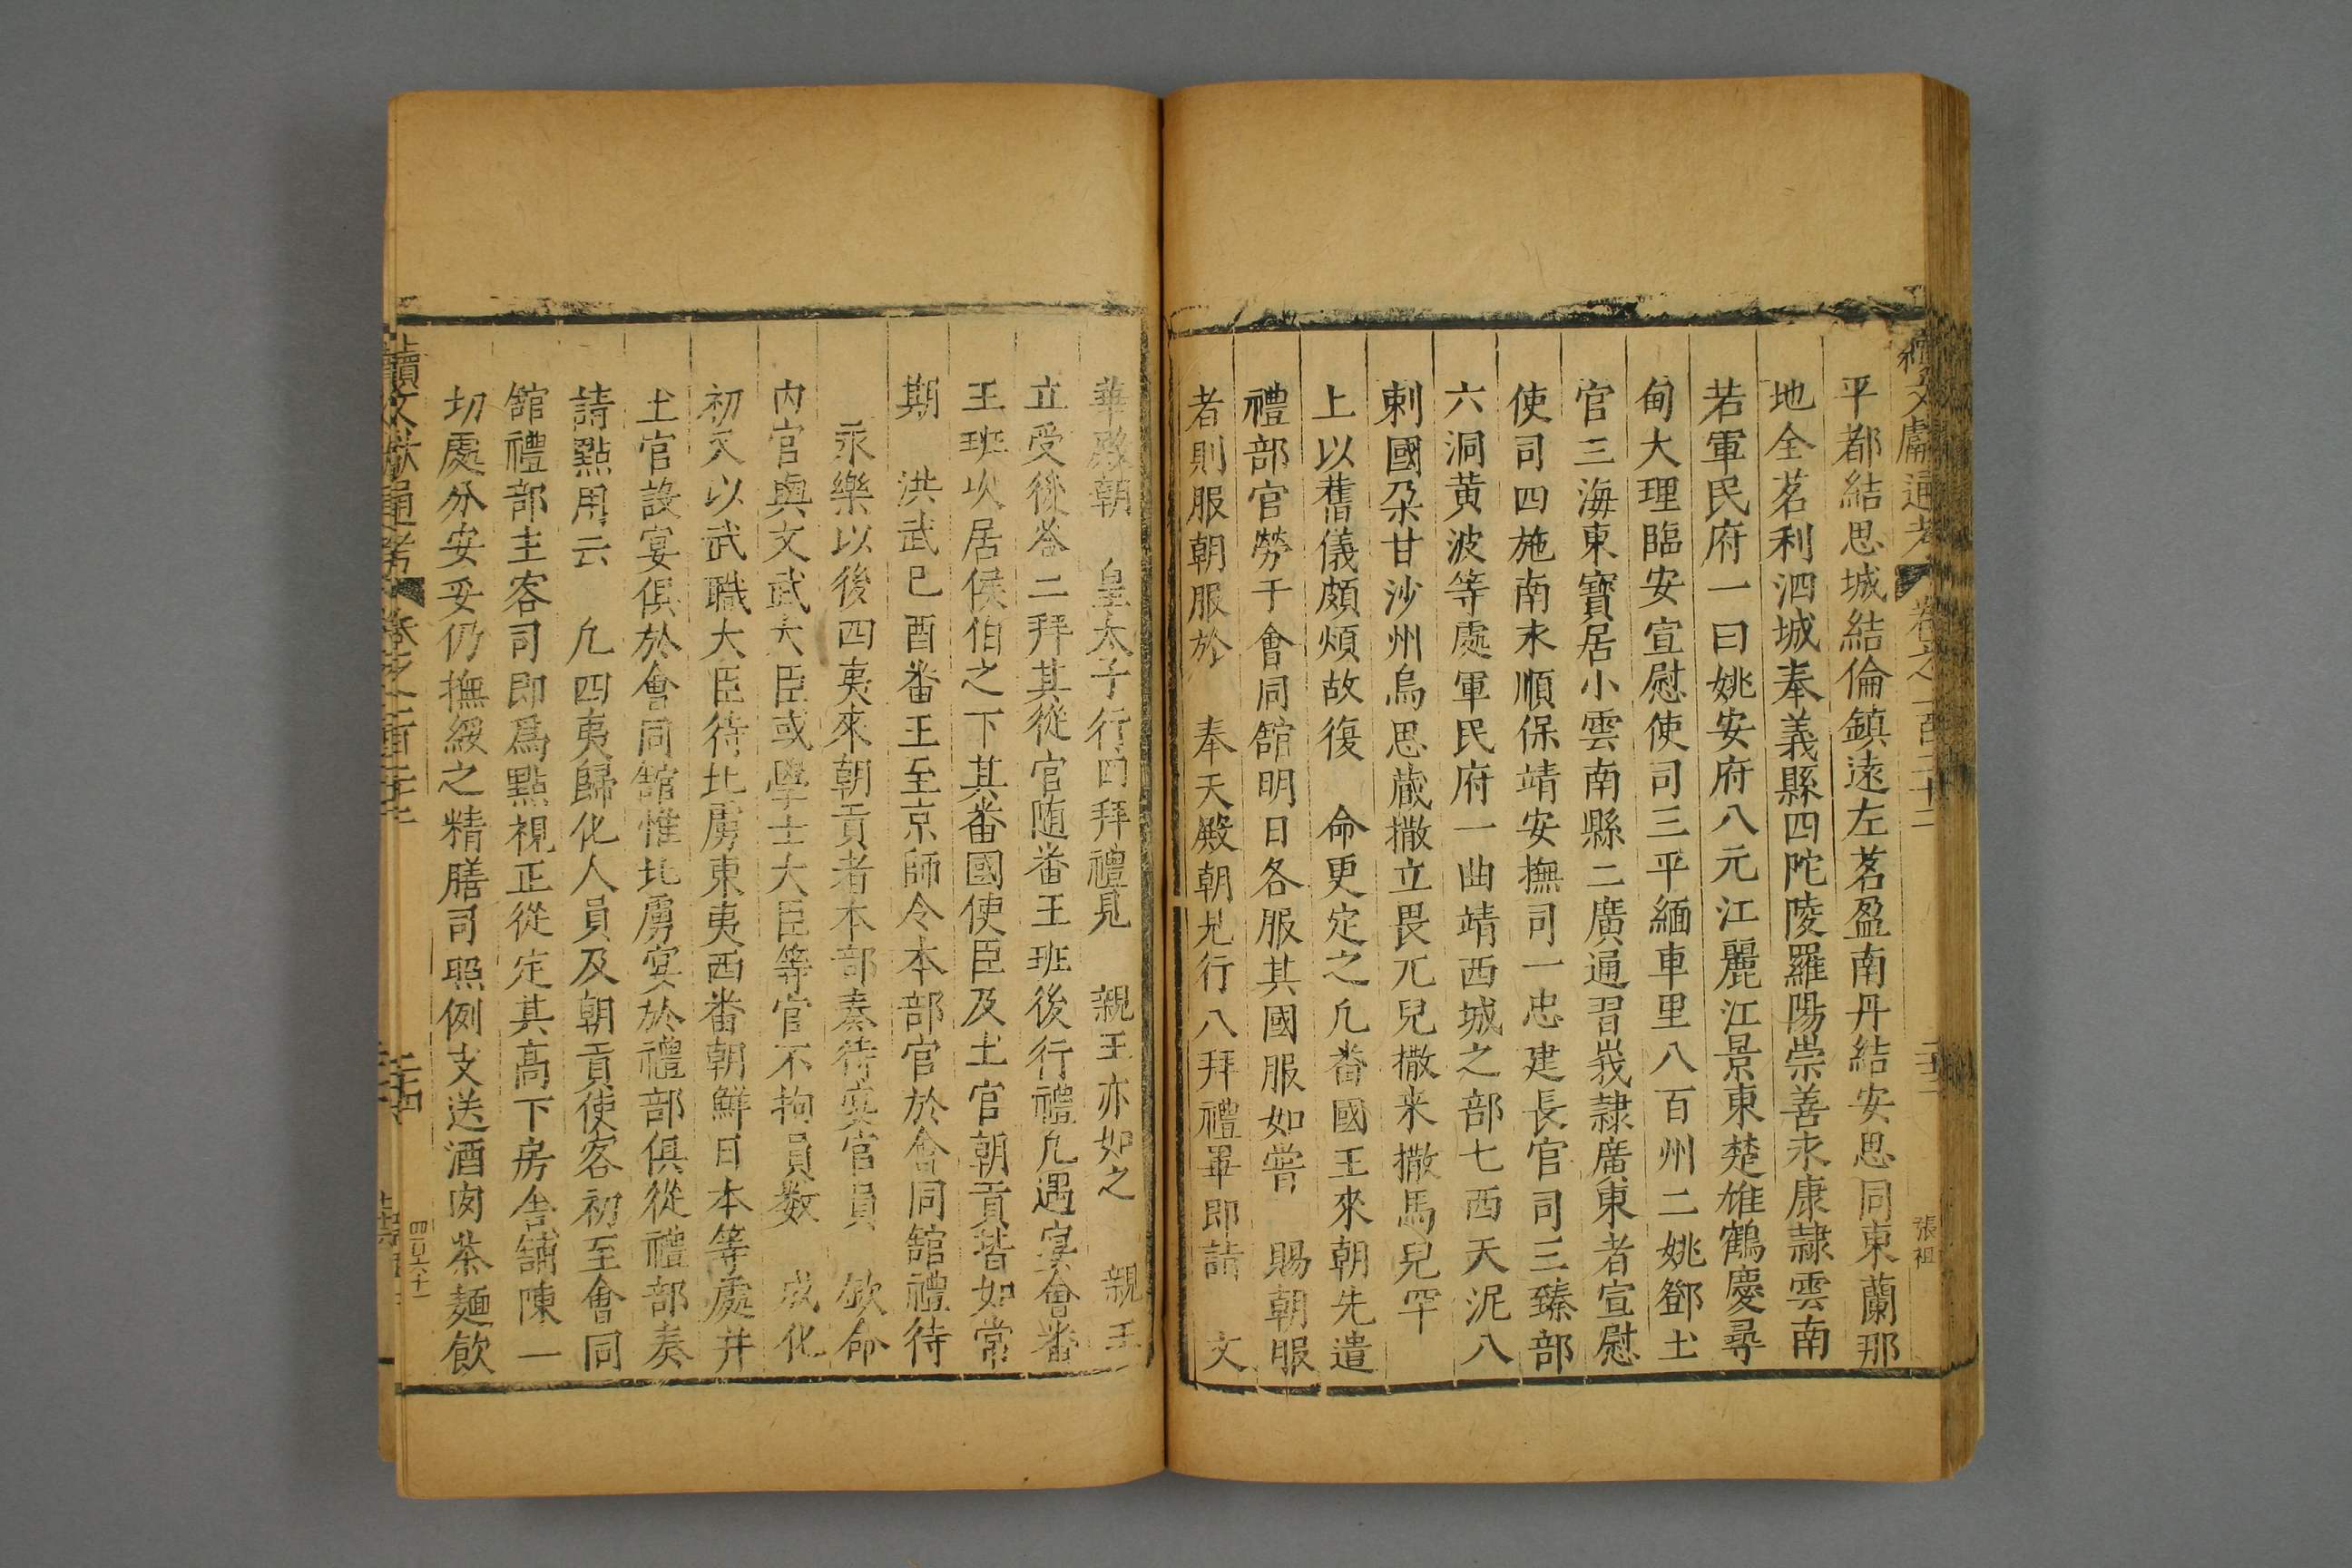 續文獻通考 卷之一百二十二 二十三 張祖
平都結思城結倫鎮遠左茗盈南丹結安思同東蘭那
地全茗利泗城奉義縣四陀陵羅陽崇善永康隷雲南
若軍民府一曰姚安府八元江麗江景東楚雄鶴慶尋
甸大理臨安宣慰使司三平緬車里八百州二姚鄧土
官三海東寶居小雲南縣二廣通習峩隷廣東者宣慰
使司四施南永順保靖安撫司一忠建長官司三臻部
六洞黄波等處軍民府一曲靖西城之部七西天泥八
剌國朶甘沙州烏思蔵撒立畏兀兒撒来撒馬兒罕
上以舊儀頗煩故復 命更定之凡番國王來朝先遣
禮部官勞于會同舘明日各服其國服如嘗 賜朝服
者則服朝服於 奉天殿朝見行八拜禮畢即詣 文
華殿朝 皇太子行四拜禮見 親王亦如之 親王
立受後荅二拜其從官随番王班後行禮凡遇宴會番
王班次居侯伯之下其番國使臣及土官朝貢皆如常
期 洪武己酉番王至京師令本部官於會同舘禮待
永樂以後四夷來朝貢者本部奏待宴官員 欽命
内官與文武大臣或學士大臣等官不拘員数 成化
初又以武職大臣待北虜東夷西番朝鮮日本等處并
土官設宴俱於會同舘惟北虜宴於禮部俱從禮部奏
請點用云 凡四夷歸化人員及朝貢使客初至會同
舘禮部主客司即爲點視正從定其高下房舎舖陳一
切處分安妥仍撫綏之精膳司照例支送酒肉茶麺飲
續文獻通考 卷之一百二十二 二十四